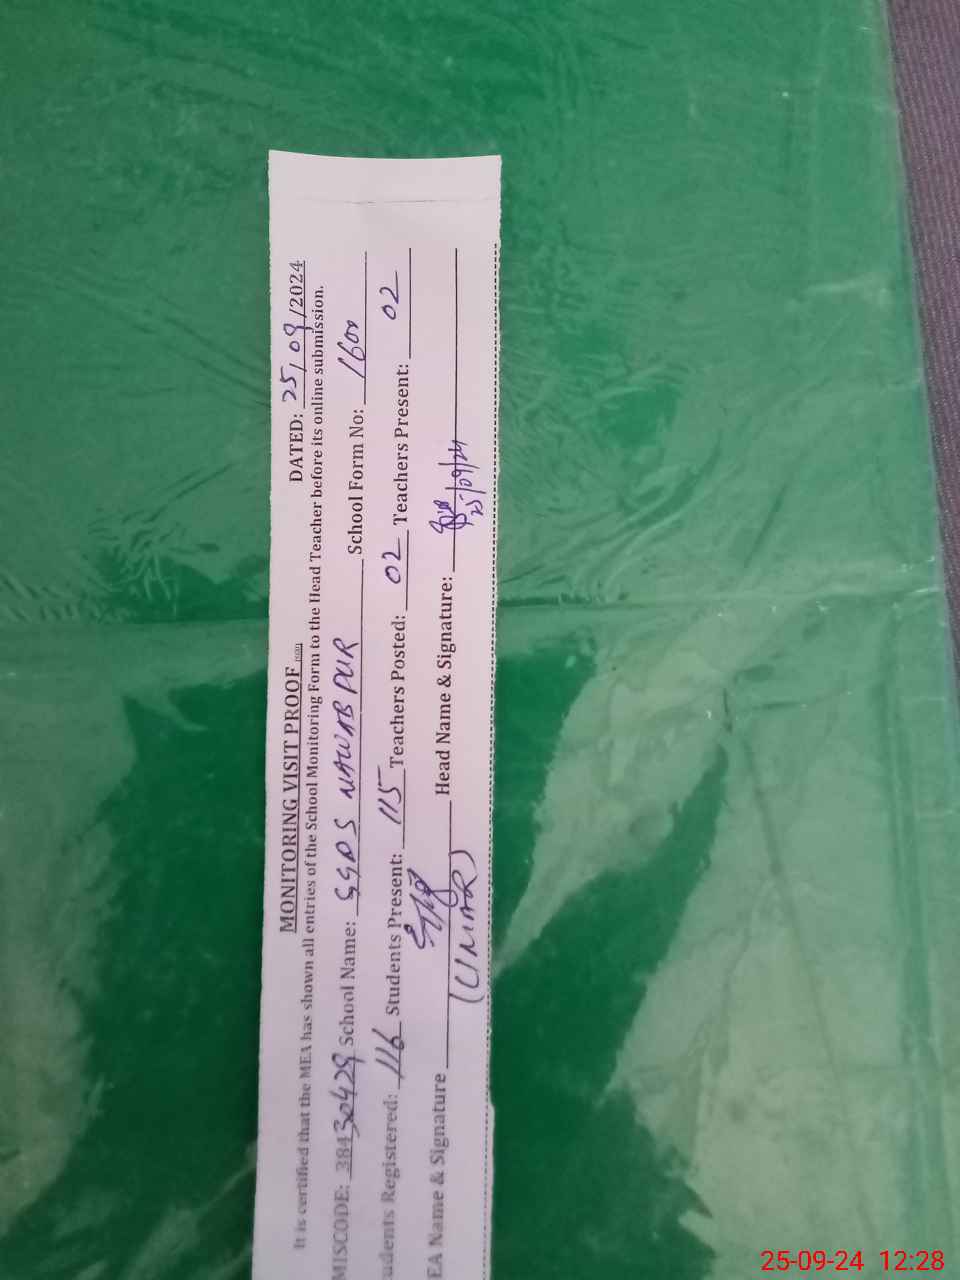 MONITORING VISIT PROOF DATED: 25/09/2024
It is certified that the MEA has shown all entries of the School Monitoring Form to the Head Teacher before its online submission.
MISCODE: 38430429 School Name: GGPS NAWAB PUR School Form No: 1600
udents Registered: 116 Students Present: 115 Teachers Posted: 02 Teachers Present: 02
EA Name & Signature (UMAR) Head Name & Signature: 25/09/24
25-09-24 12:28